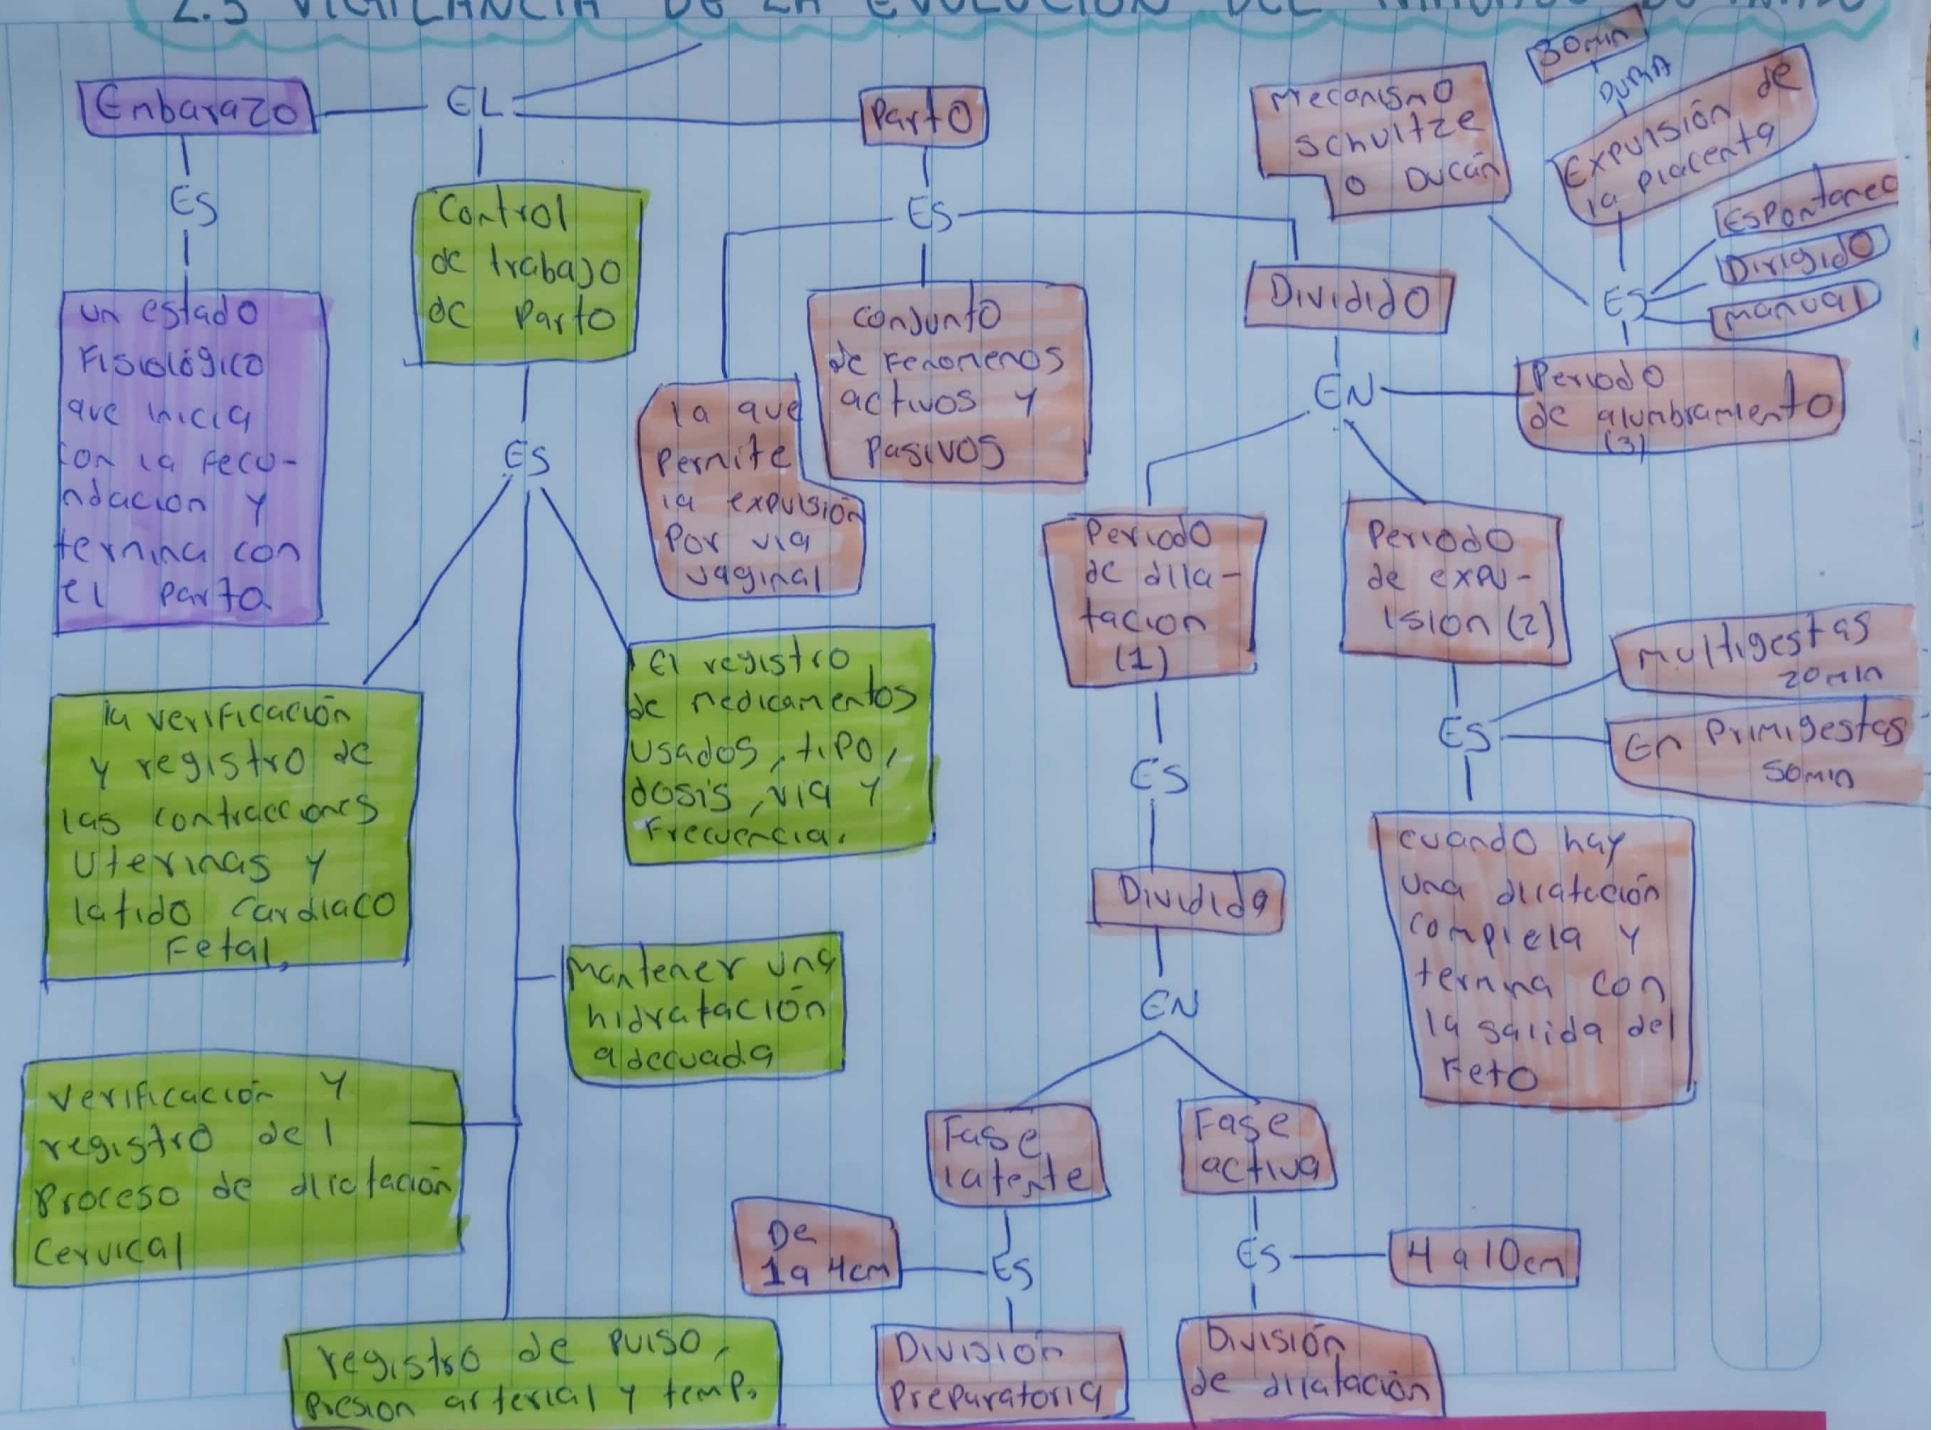 2.5 VIGILANCIA DE LA EVOLUCION DEL
Embarazo
EL
Parto
ES
un estado
Fisiológico
que inicia
con la fecu-
ndacion y
termina con
el parto
Control
de trabajo
de Parto
ES
la verificación
y registro de
las contracciones
Uterinas y
latido cardiaco
Fetal,
El registro
de medicamentos
Usados, tipo,
dosis, via y
Frecuencia.
Mantener una
hidratación
adecuada
Verificación y
registro del
Proceso de dilatación
Cervical
registro de pulso,
Presion arterial y temp.
ES
la que
Permite
la expulsión
Por via
vaginal
conjunto
de Fenomenos
activos y
Pasivos
Dividido
EN
Periodo
de dila-
tacion
(1)
ES
Dividida
EN
Fase
latente
ES
De
1a 4cm
División
Preparatoria
Fase
activa
ES
4 a 10cm
División
de dilatación
Periodo
de expu-
lsion (2)
ES
Multigestas
20min
En Primigestas
50min
cuando hay
una dilatación
completa y
termina con
la salida del
Feto
Periodo
de alumbramiento
(3)
ES
Mecanismo
Schultze
o Ducán
Expulsión de
la placenta
DURA
30min
Espontaneo
Dirigido
manual